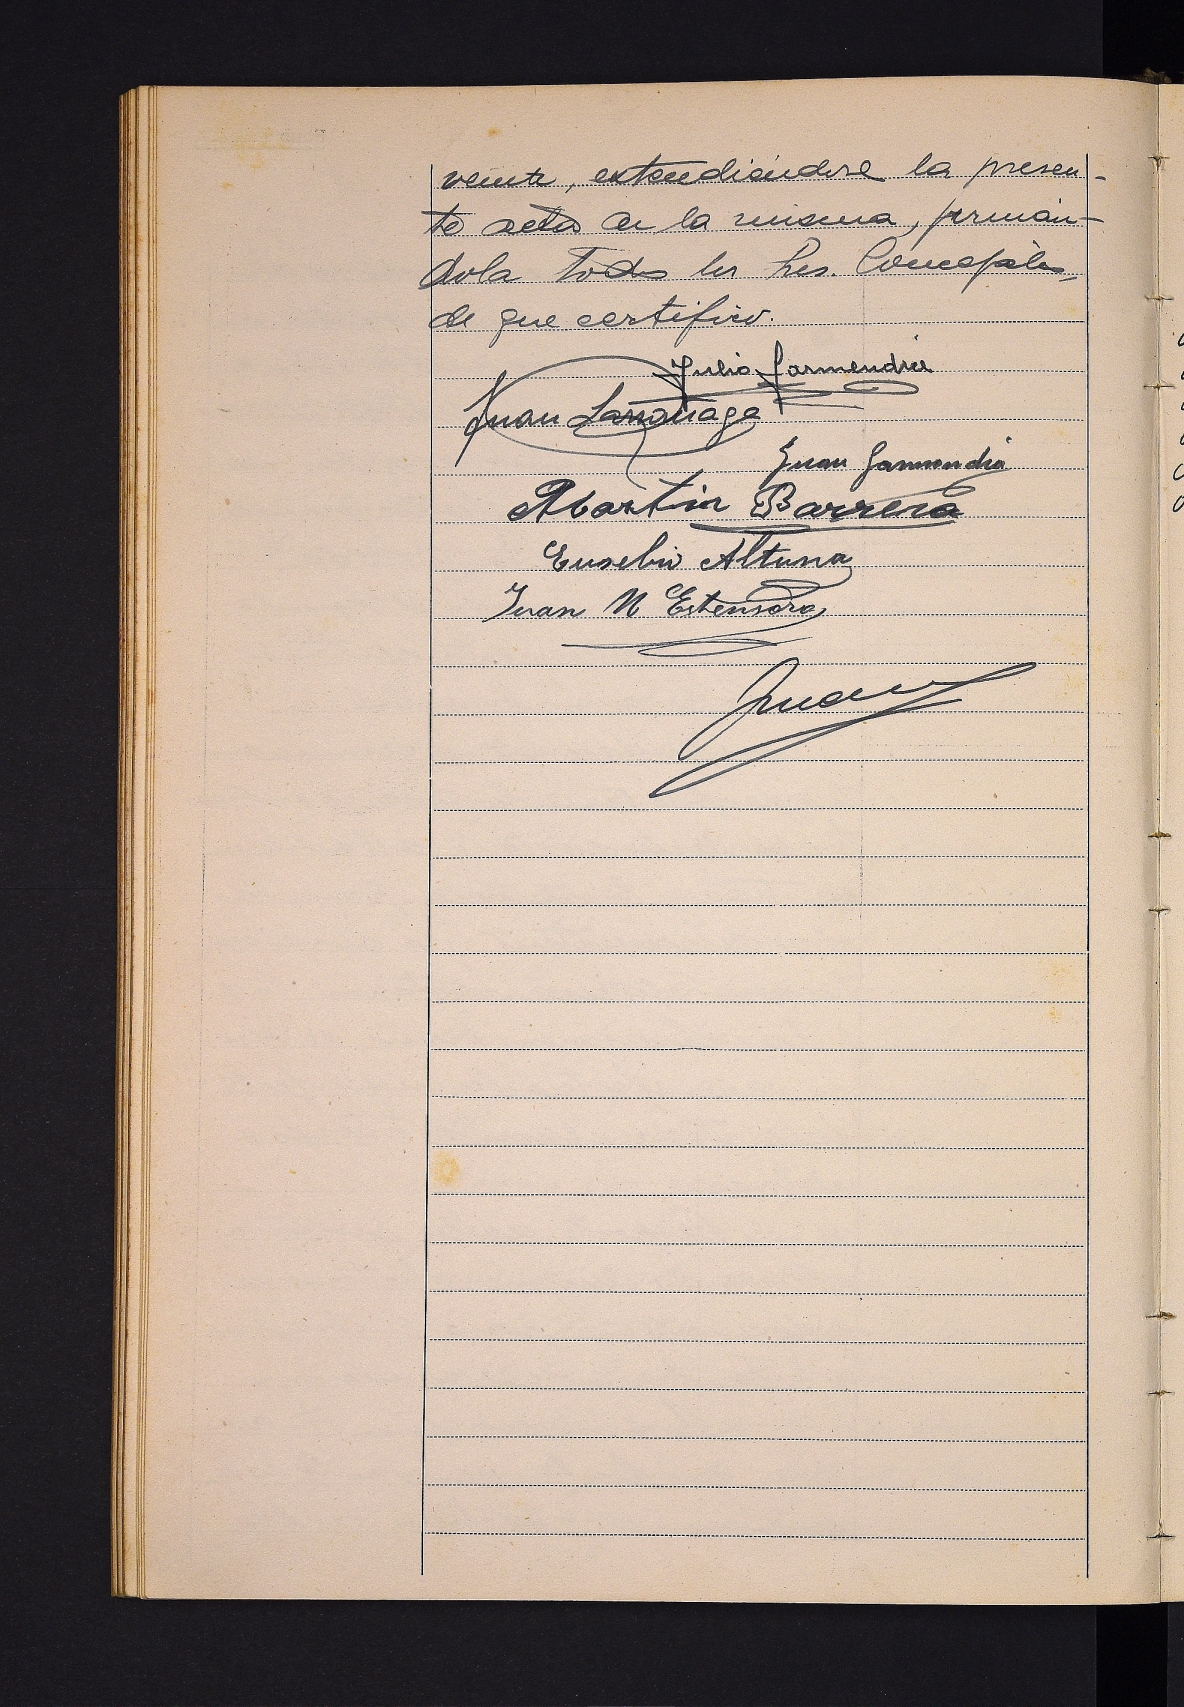 veinte, extendiéndose la presen-
te acta de la misma, firmán-
dola todos los Sres. Concejales,
de que certifico.
Julio Garmendia
Juan Larrañaga
Juan Garmendia
Martin Barrera
Eusebio Altuna
Juan N Estensoro